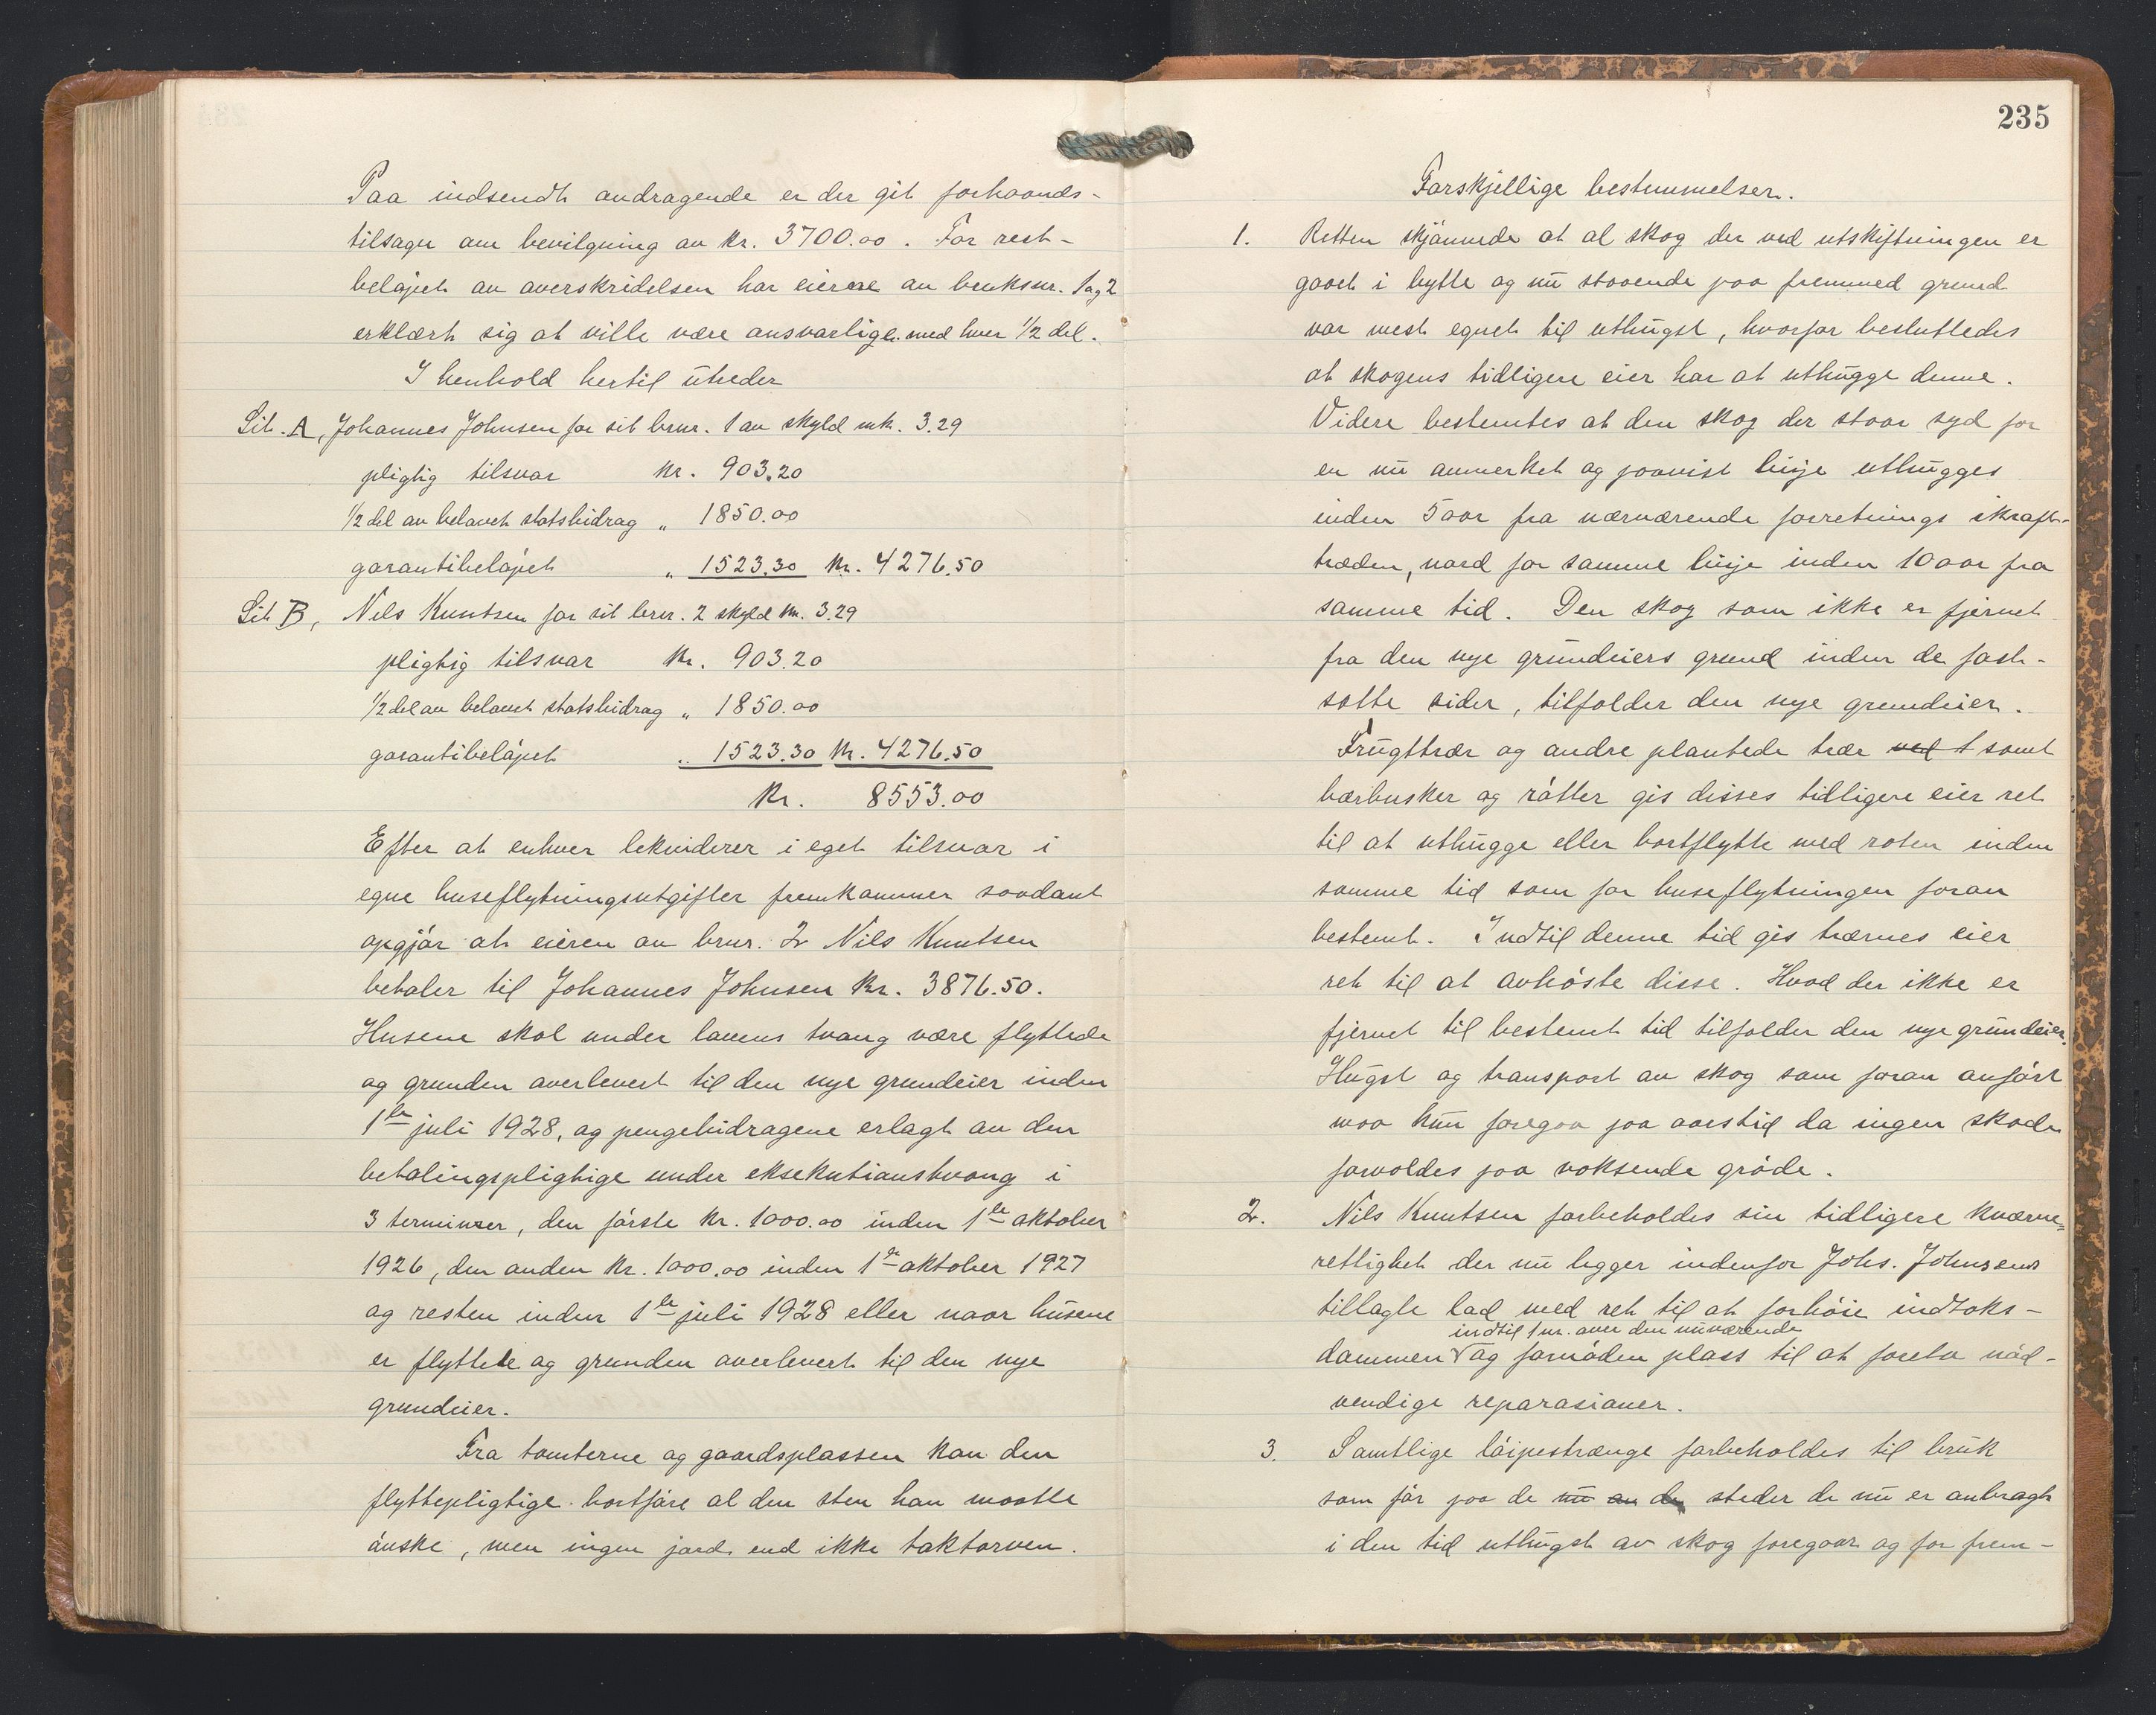 Paa indsendt andragende er der git forhaands-
tilsagn om bevilgning av kr. 3700.00. For rest-
beløpet av overskridelsen har eierne av bruksnr. 1 og 2
erklært sig at ville være ansvarlige med hver 1/2 del.
I henhold hertil utreder
Lit. A, Johannes Johnsen for sit brnr. 1 av skyld mk. 3.29
pligtig tilsvar kr. 903.20
1/2 del av belovet statsbidrag „ 1850.00
garantibeløpet „ 1523.30 kr. 4276.50
Lit B, Nils Knutsen for sit brnr. 2 skyld m. 3.29
pligtig tilsvar kr. 903.20
1/2 del av belovet statsbidrag „ 1850.00
garantibeløpet „ 1523.30 kr. 4276.50
Kr. 8553.00
Efter at enhver lekviderer i eget tilsvar i
egne huseflytningsutgifter fremkommer saadant
opgjør at eieren av brnr. 2 Nils Knutsen
betaler til Johannes Johnsen kr. 3876.50.
Husene skal under lovens tvang være flyttede
og grunden overlevert til den nye grundeier inden
1ste juli 1928, og pengebidragene erlagt av den
betalingspligtige under eksekutionstvang i
3 terminer, den første kr. 1000.00 inden 1ste oktober
1926, den anden kr. 1000.00 inden 1ste oktober 1927
og resten inden 1ste juli 1928 eller naar husene
er flyttete og grunden overlevert til den nye
grundeier.
Fra tomterne og gaardsplassen kan den
flyttepligtige bortføre al den sten han maatte
ønske, men ingen jord, end ikke taktorven.
235
Forskjellige bestemmelser.
1. Retten skjønnede at al skog der ved utskiftningen er
gaaet i bytte og nu staaende paa fremmed grund
var mest egnet til uthugst, hvorfor besluttedes
at skogens tidligere eier har at uthugge denne.
Videre bestemtes at den skog der staar syd for
en nu anmerket og paavist linje uthugges
inden 5 aar fra nærværende forretnings ikraft-
træden, nord for samme linje inden 10 aar fra
samme tid. Den skog som ikke er fjernet
fra den nye grundeiers grund inden de fast-
satte tider, tilfalder den nye grundeier.
Frugttrær og andre plantede trær ved t samt
bærbusker og røtter gis disses tidligere eier ret
til at uthugge eller bortflytte med roten inden
samme tid som for huseflytningen foran
bestemt. Indtil denne tid gis trærnes eier
ret til at avhøste disse. Hvad der ikke er
fjernet til bestemt tid tilfalder den nye grundeier.
Hugst og transport av skog som foran anført
maa kun foregaa paa aarstid da ingen skade
forvoldes paa voksende grøde.
2. Nils Knutsen forbeholdes sin tidligere kværne-
rettighet der nu ligger indenfor Johs. Johnsens
tillagte lod med ret til at forhøie indtaks-
indtil 1 m. over den nuværende
dammen og fornøden plass til at foreta nød-
vendige reparasioner.
3. Samtlige løipestrænge forbeholdes til bruk
som før paa de nu an de steder de nu er anbragt
i den tid uthugst av skog foregaar og for frem-